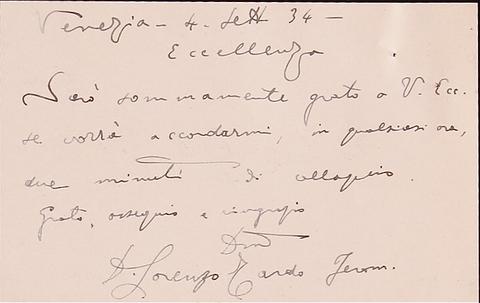 Venezia - 4. Sett 34 -
Eccellenza
Sarò sommamente grato a V. Ecc.
se vorrà accordarmi, in qualsiasi ora,
due minuti di colloquio.
Grato, ossequio e ringrazio
D. Lorenzo Tardo Jerom.